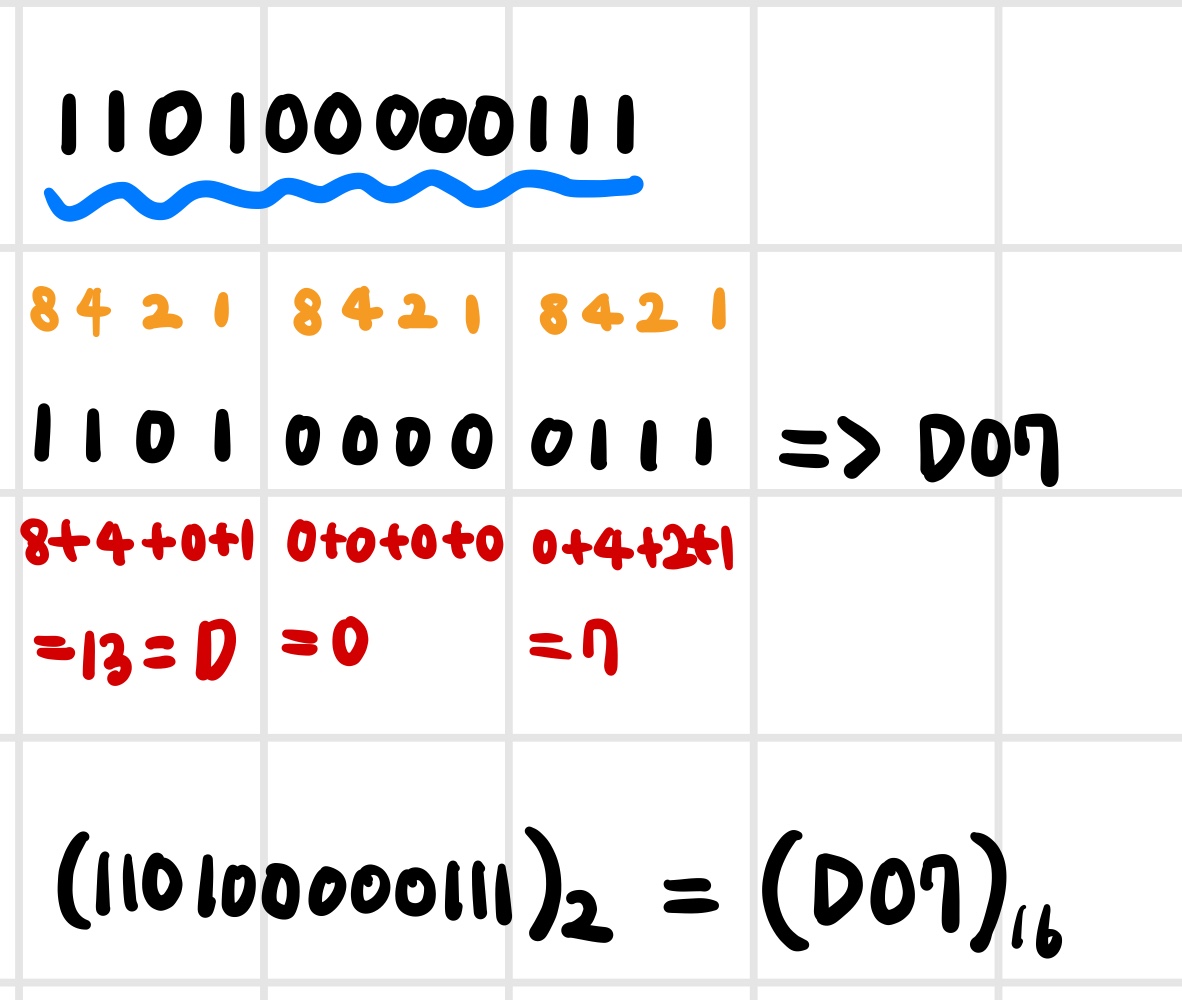 110100000111
8 4 2 1 8 4 2 1 8 4 2 1
1101 0000 0111 => D07
8+4+0+1 0+0+0+0 0+4+2+1
=13=D =0 =7
(110100000111)₂ = (D07)₁₆